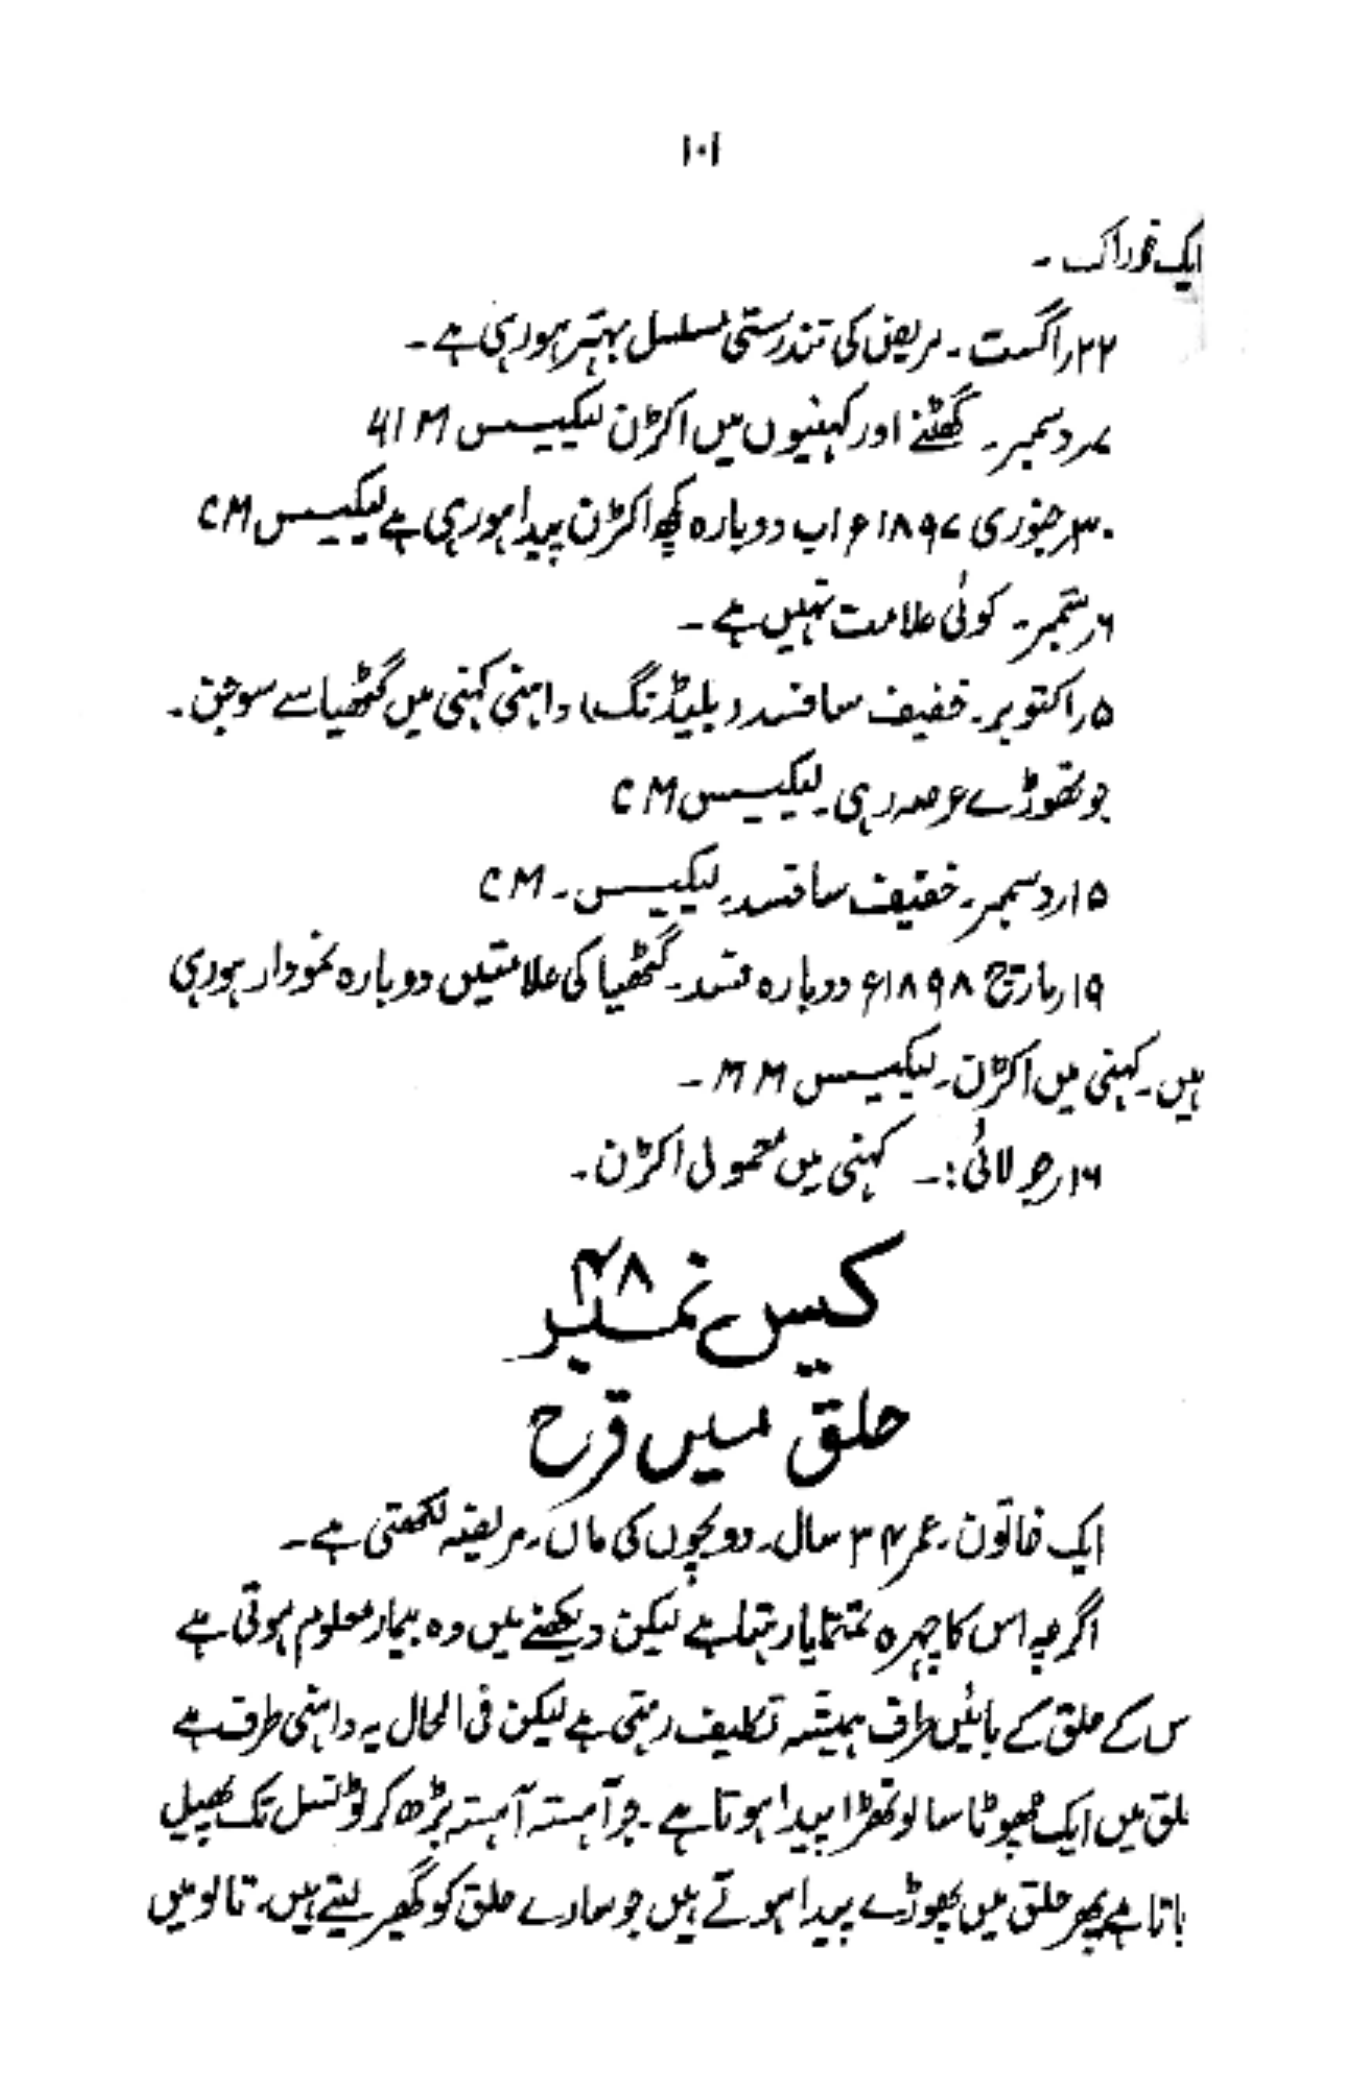 ۱۰۱
ایک خوراک ۔
۲۲ر اگست ۔ مریض کی تندرستی مسلسل بہتر ہو رہی ہے ۔
۷ر دسمبر ۔ گھٹنے اور کہنیوں میں اکڑن لیکیسس 41 M
۳۰ر جنوری ۱۸۹۷ء اب دوبارہ کچھ اکڑن پیدا ہو رہی ہے لیکیسس CM
۶ر ستمبر ۔ کوئی علامت نہیں ہے ۔
۵ر اکتوبر ۔ خفیف سا فسد (بلیڈنگ) داہنی کہنی میں گٹھیا سے سوجن ۔
جو تھوڑے عرصہ رہی ۔ لیکیسس CM
۱۵ر دسمبر ۔ خفیف سا فسد ۔ لیکیسس ۔ CM
۱۹ر مارچ ۱۸۹۸ء دوبارہ فسد ۔ گٹھیا کی علامتیں دوبارہ نمودار ہو رہی
ہیں ۔ کہنی میں اکڑن ۔ لیکیسس MM ۔
۱۶ر جولائی :۔ کہنی میں معمولی اکڑن ۔
کیس نمبر ۴۸
حلق میں قرح
ایک خاتون ۔ عمر ۳۴ سال ۔ دو بچوں کی ماں ۔ مریضہ لکھتی ہے ۔
اگرچہ اس کا چہرہ تمتمایا رہتا ہے لیکن دیکھنے میں وہ بیمار معلوم ہوتی ہے
س کے حلق کے بائیں طرف ہمیشہ تکلیف رہتی ہے لیکن فی الحال یہ داہنی طرف ہے
لق میں ایک چھوٹا سا لوتھڑا پیدا ہوتا ہے ۔ جو آہستہ آہستہ بڑھ کر ٹونسل تک پھیل
باتا ہے پھر حلق میں پھوڑے پیدا ہوتے ہیں جو سارے حلق کو گھیر لیتے ہیں ، تالو میں